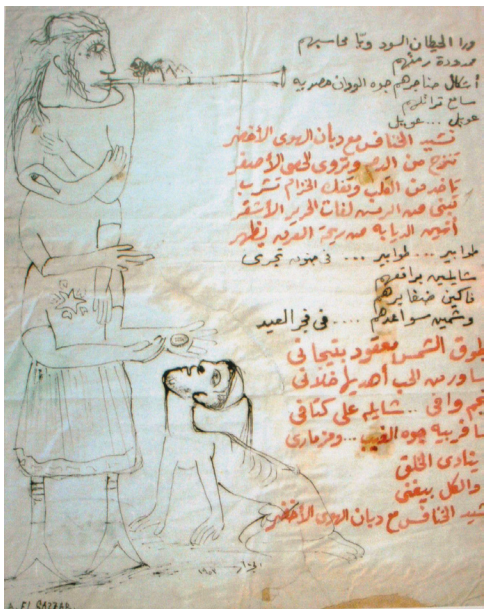 ورا الحيطان السود ويا محاسيبهم
ممدودة رمتهم
أشكال حناجرهم جوه الودان حصريه
سامع تراتلهم
عويل ... عويل
نشيد الخنافس مع ديان الهوى الأخضر
تنزح من الدم وتروى الحصى الأصفر
تاخد من القلب وتفك الخزام تشرب
تبنى من الرمس لفات الحرير الأشقر
أمتى الديابه من ريحة العرق تظهر
طوابير ... طوابير ... فى جنونه تجرى
شايلين مراقعهم
فاكين ضفايرهم
وشمين سواعدهم .... فى فجر العيد
طوق الشمس معقود بتيجانى
ساور من الحب أهديها خلانى
نجم وافى .. شايله على كتافى
سافر بيه جوه الغيب ... ومزمارى
ينادى الخلق
والكل بيغنى
شيد الخنافس مع ديان الهوى الأخضر
الجزار
A. El GAZZAR